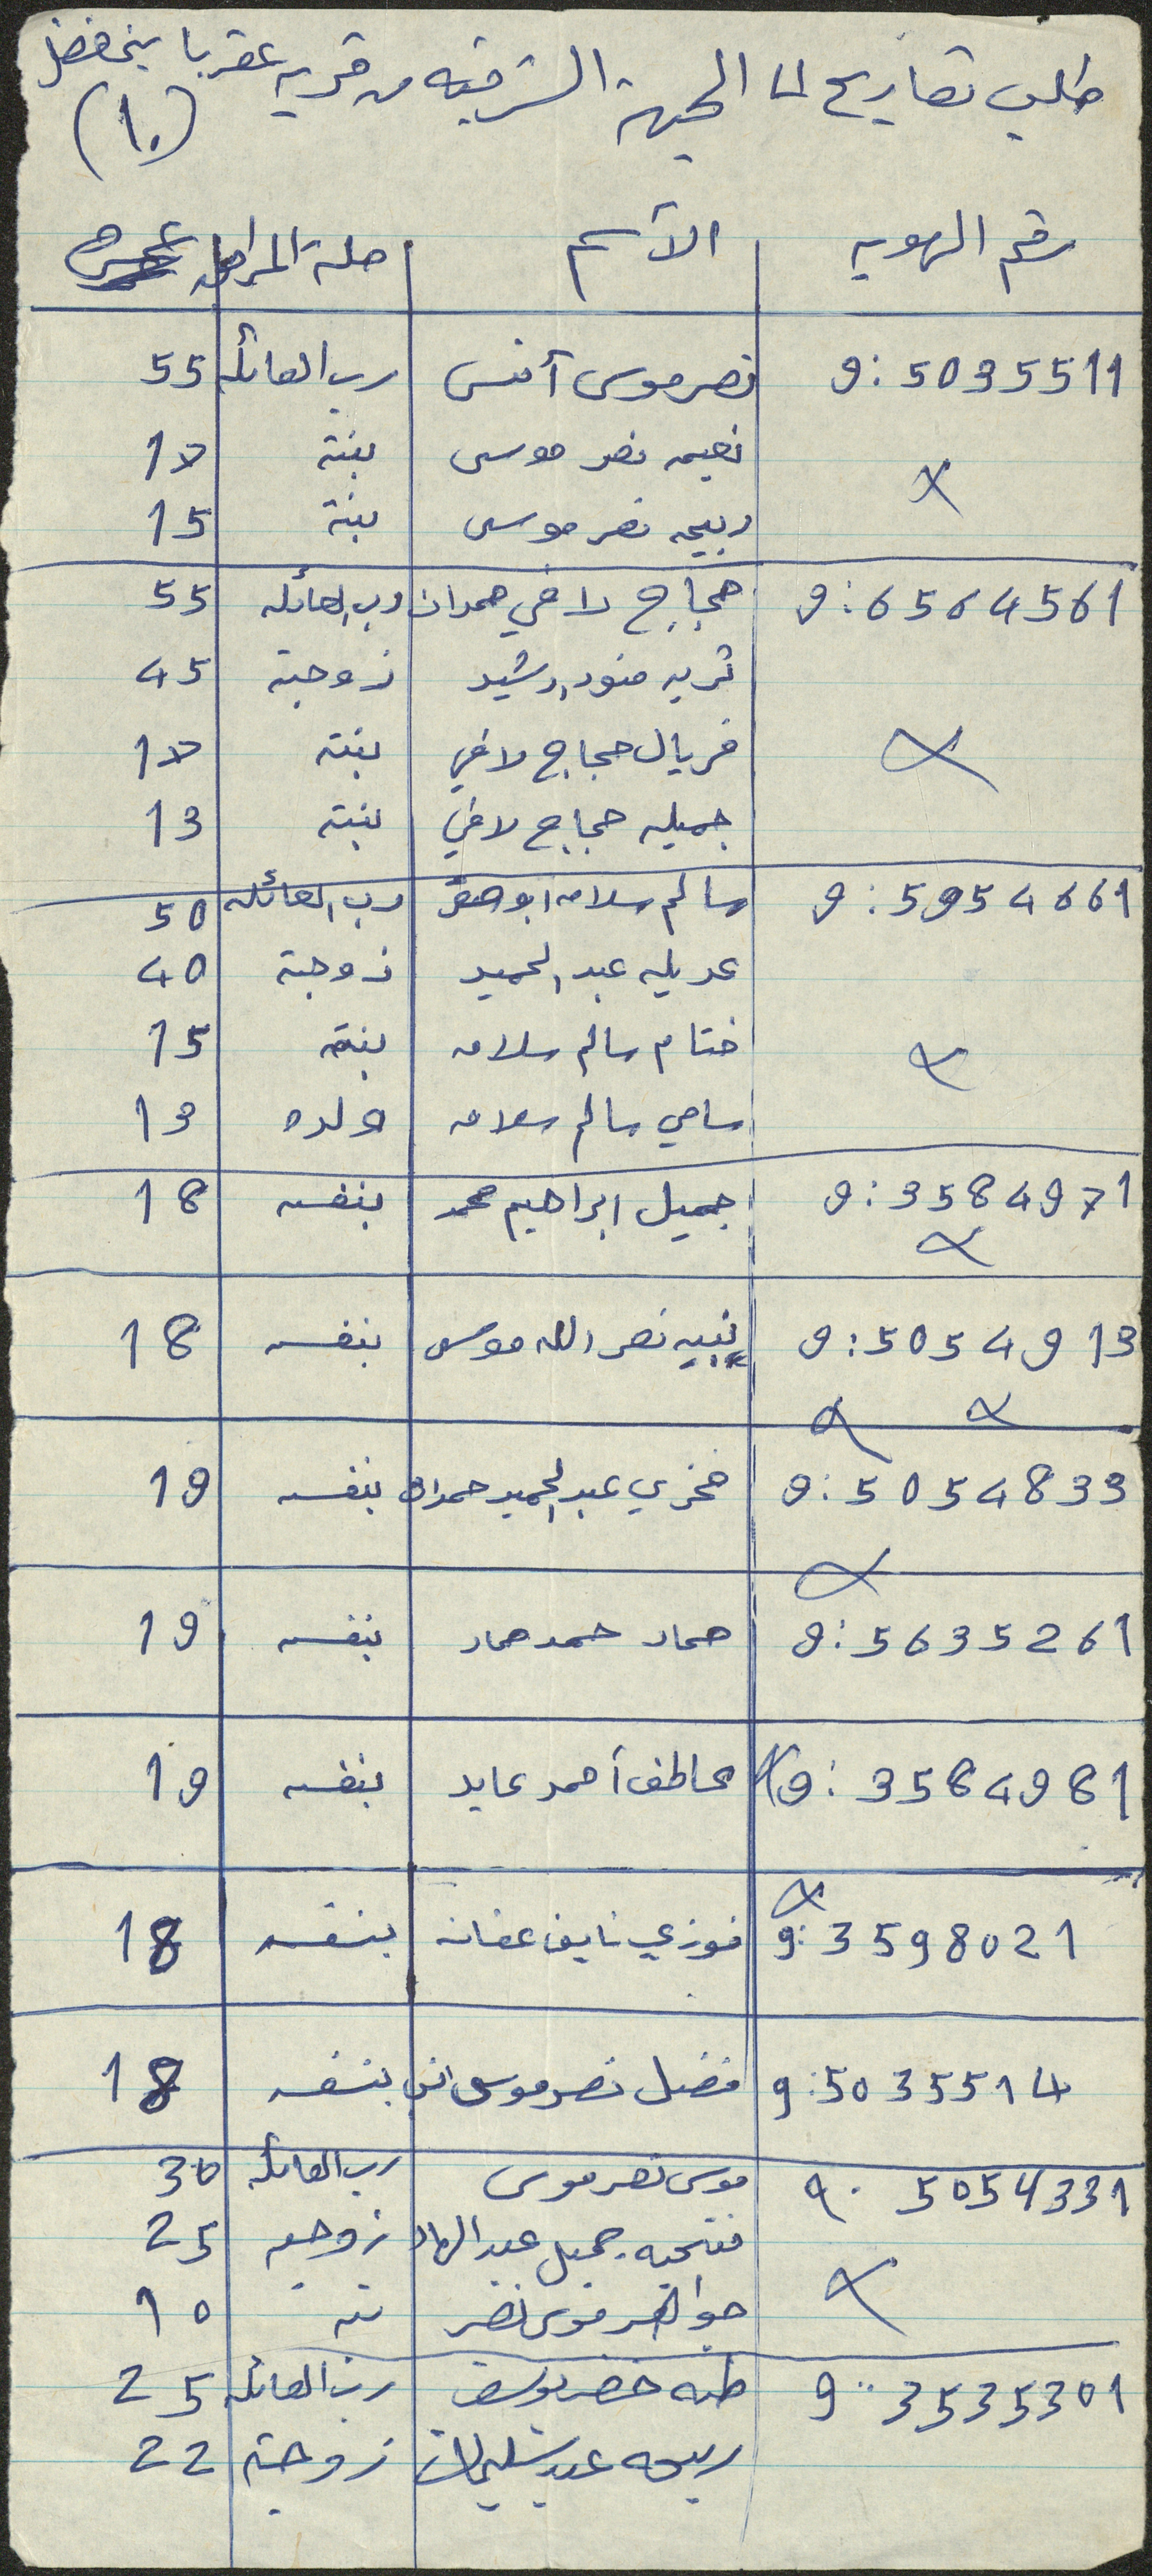 طلب تصاريح لما الجهة الشرقيه من قريه عقربا
(١٠)
رقم الهويه الأسم صلة
9:5035511 نصر موسى أنس رب العائله 55
نعيمه نصر موسى بنتة 17
x ربيحه نصر موسى بنتة 15
9:6564561 حجاج لافي حمدان رب العائله 55
رشيد زوجتة 45
x فريال حجاج لافي بنته 17
جميله حجاج لافي بنته 13
9:5954661 سالم سلامه ابو رب العائله 50
عديله عبد الحميد زوجتة 40
x ختام سالم سلامه بنته 15
سامي سالم سلامه ولده 13
9:3584971 جميل ابراهيم محمد بنفسه 18
x
9:5054913 نبيه نصر الله موسى بنفسه 18
x x
9:5054833 فخري عبد الحميد حمدان بنفسه 19
x
9:5635261 حماد حمد حماد بنفسه 19
9:3584981 عاطف أحمد عايد بنفسه 19
x
9:3598021 فوزي نايف عفانه بنفسه 18
9:5035514 فضل نصر موسى بنفسه 18
9:5054331 موسى نصر موسى رب العائله 30
فتحيه جميل عبد الهاد زوجته 25
x موسى نصر 10
9:3535301 طه خضر يوسف رب العائله 25
عبد زوجتة 22